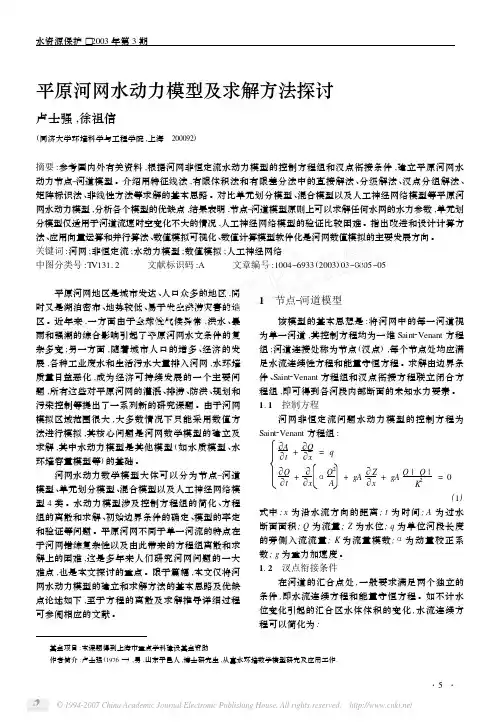 水资源保护 □2003 年第 3 期
平原河网水动力模型及求解方法探讨
卢士强,徐祖信
(同济大学环境科学与工程学院,上海 200092)
摘要:参考国内外有关资料,根据河网非恒定流水动力模型的控制方程组和汊点衔接条件,建立平原河网水
动力节点-河道模型。介绍用特征线法,有限体积法和有限差分法中的直接解法、分级解法、汊点分组解法、
矩阵标识法、非线性方法等求解的基本思路。对比单元划分模型、混合模型以及人工神经网络模型等平原河
网水动力模型,分析各个模型的优缺点,结果表明,节点-河道模型原则上可以求解任何水网的水力参数,单元划
分模型仅适用于河道流速时空变化不大的情况,人工神经网络模型的验证比较困难。指出改进和设计计算方
法、应用向量运算和并行算法、数值模拟可视化、数值计算模型软件化是河网数值模拟的主要发展方向。
关键词:河网;非恒定流;水动力模型;数值模拟;人工神经网络
中图分类号:TV131.2 文献标识码:A 文章编号:1004-6933(2003)03-0005-05
平原河网地区是城市发达、人口众多的地区,同
时又是湖泊密布、地势较低、易于发生洪涝灾害的地
区。近年来,一方面由于全球性气候异常,洪水、暴
雨和强潮的综合影响引起了平原河网水文条件的复
杂多变;另一方面,随着城市人口的增多、经济的发
展,各种工业废水和生活污水大量排入河网,水环境
质量日益恶化,成为经济可持续发展的一个主要问
题,所有这些对平原河网的灌溉、排涝、防洪、规划和
污染控制等提出了一系列新的研究课题。由于河网
模拟区域范围很大,大多数情况下只能采用数值方
法进行模拟,其核心问题是河网数学模型的建立及
求解,其中水动力模型是其他模型(如水质模型、水
环境容量模型等)的基础。
河网水动力数学模型大体可以分为节点-河道
模型、单元划分模型、混合模型以及人工神经网络模
型 4 类。水动力模型涉及控制方程组的简化、方程
组的离散和求解、初始边界条件的确定、模型的率定
和验证等问题。平原河网不同于单一河流的特点在
于河网错综复杂性以及由此带来的方程组离散和求
解上的困难,这是多年来人们研究河网问题的一大
难点,也是本文探讨的重点。限于篇幅,本文仅将河
网水动力模型的建立和求解方法的基本思路及优缺
点论述如下,至于方程的离散及求解推导详细过程
可参阅相应的文献。
1 节点-河道模型
该模型的基本思想是:将河网中的每一河道视
为单一河道,其控制方程均为一维 Saint-Venant 方程
组;河道连接处称为节点(汊点),每个节点处均应满
足水流连续性方程和能量守恒方程。求解由边界条
件、Saint-Venant 方程组和汊点衔接方程联立闭合方
程组,即可得到各河段内部断面的未知水力要素。
1.1 控制方程
河网非恒定流问题水动力模型的控制方程为
Saint-Venant 方程组:
∂A/∂t + ∂Q/∂x = q
∂Q/∂t + ∂/∂x [α Q²/A] + gA ∂Z/∂x + gA Q|Q|/K² = 0
(1)
式中:x 为沿水流方向的距离;t 为时间;A 为过水
断面面积;Q 为流量;Z 为水位;q 为单位河段长度
的旁侧入流流量;K 为流量模数;α 为动量校正系
数;g 为重力加速度。
1.2 汊点衔接条件
在河道的汇合点处,一般要求满足两个独立的
条件,即水流连续方程和能量守恒方程。如不计水
位变化引起的汇合区水体体积的变化,水流连续方
程可以简化为:
基金项目:本课题得到上海市重点学科建设基金资助
作者简介:卢士强(1976—),男,山东平邑人,博士研究生,从事水环境数学模型研究及应用工作.
· 5 ·
© 1994-2007 China Academic Journal Electronic Publishing House. All rights reserved. http://www.cnki.net